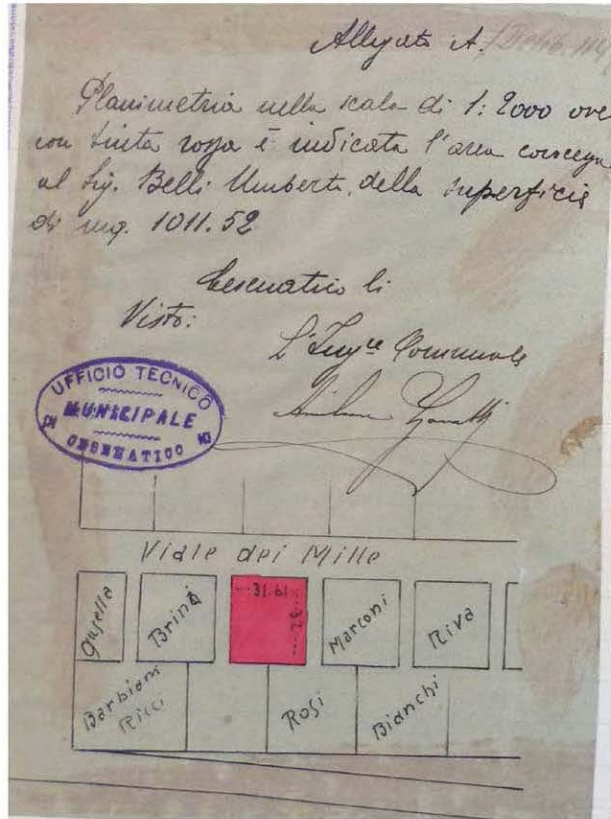 Allegato A.
Planimetria nella scala di 1:2000 ove
con tinta rossa è indicata l'area concessa
al Sig. Belli Umberto, della superficie
di mq. 1011.52
Cesenatico li
Visto:
L'Ingre Comunale
UFFICIO TECNICO
MUNICIPALE
DI CESENATICO
Viale dei Mille
Gusella
Brini
31.61
32
Marconi
Riva
Barbiani
Ricci
Rosi
Bianchi